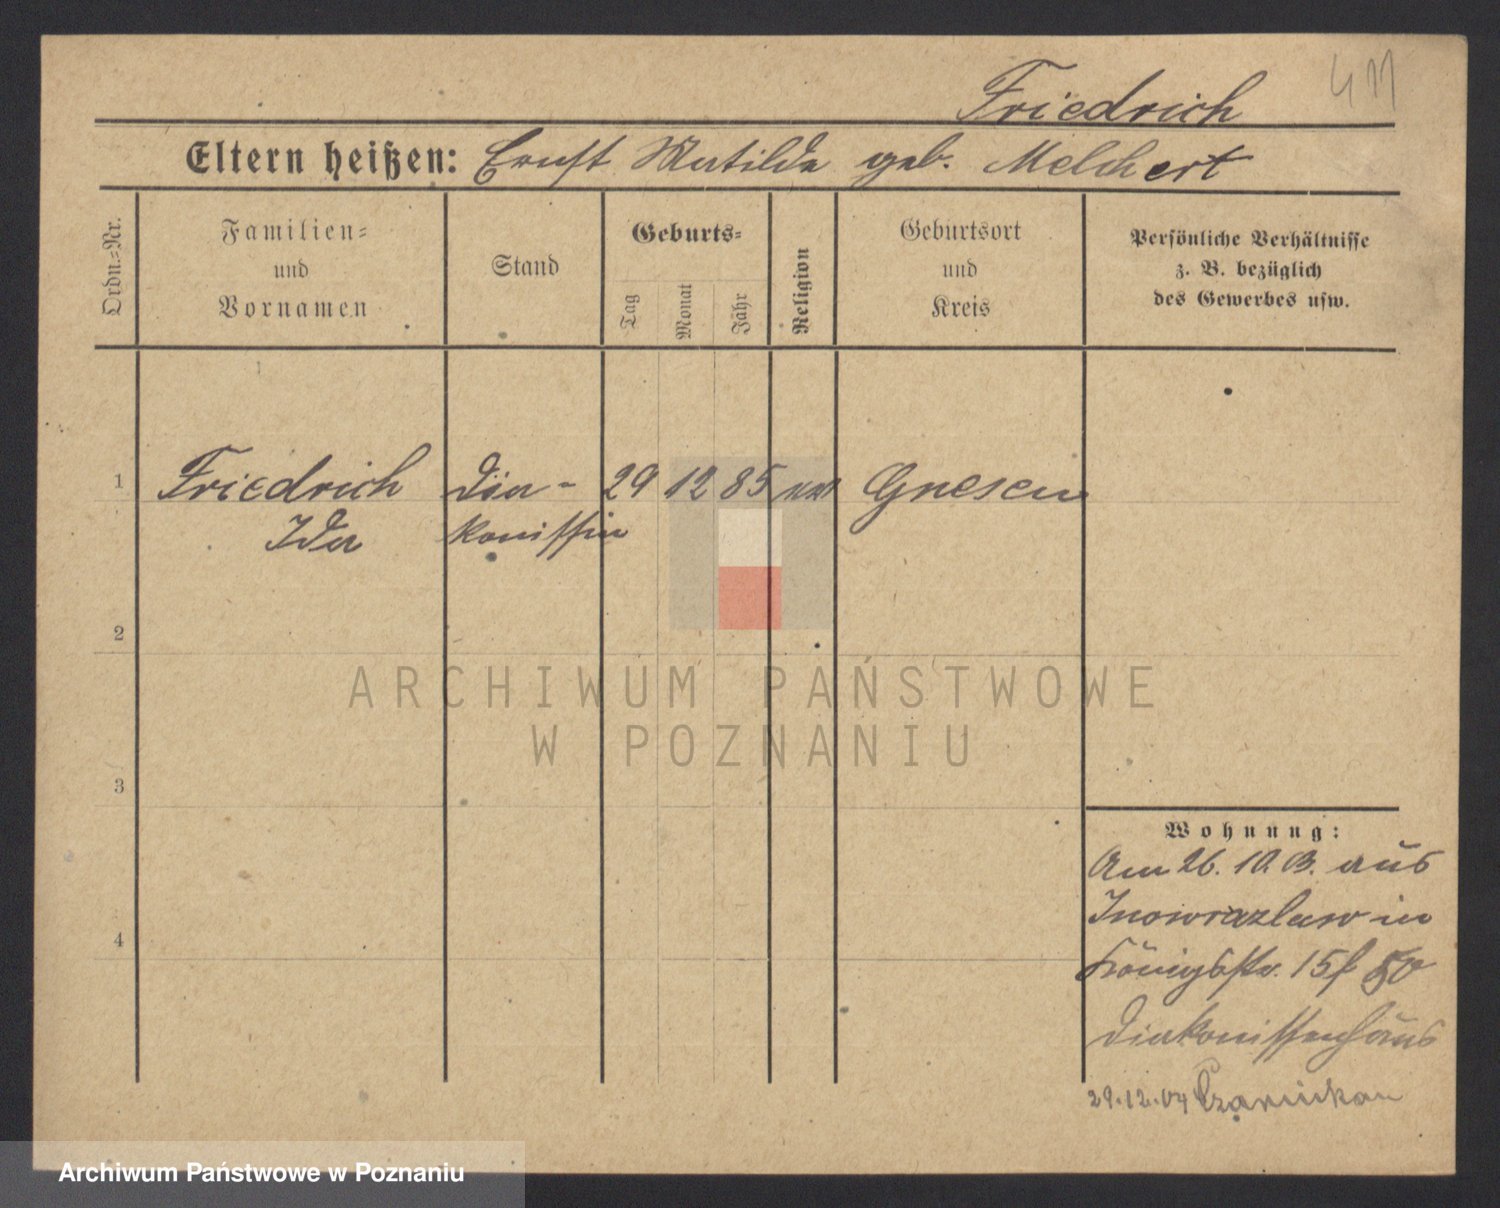 411
Friedrich
Eltern heißen: Ernst Matilde geb. Melchert
Ordn.=Nr.
Familien=
und
Vornamen
Stand
Geburts=
Tag
Monat
Jahr
Religion
Geburtsort
und
Kreis
Persönliche Verhältnisse
z. B. bezüglich
des Gewerbes usw.
1 Friedrich Dia- 29 12 85 Gnesen
Ida konissin
2
3
4
ARCHIWUM PAŃSTWOWE
W POZNANIU
Wohnung:
Am 26. 10. 03. aus
Inowrazlaw in
Königsstr. 15
Diakonissenhaus
29.12.04 Czarnikau
Archiwum Państwowe w Poznaniu